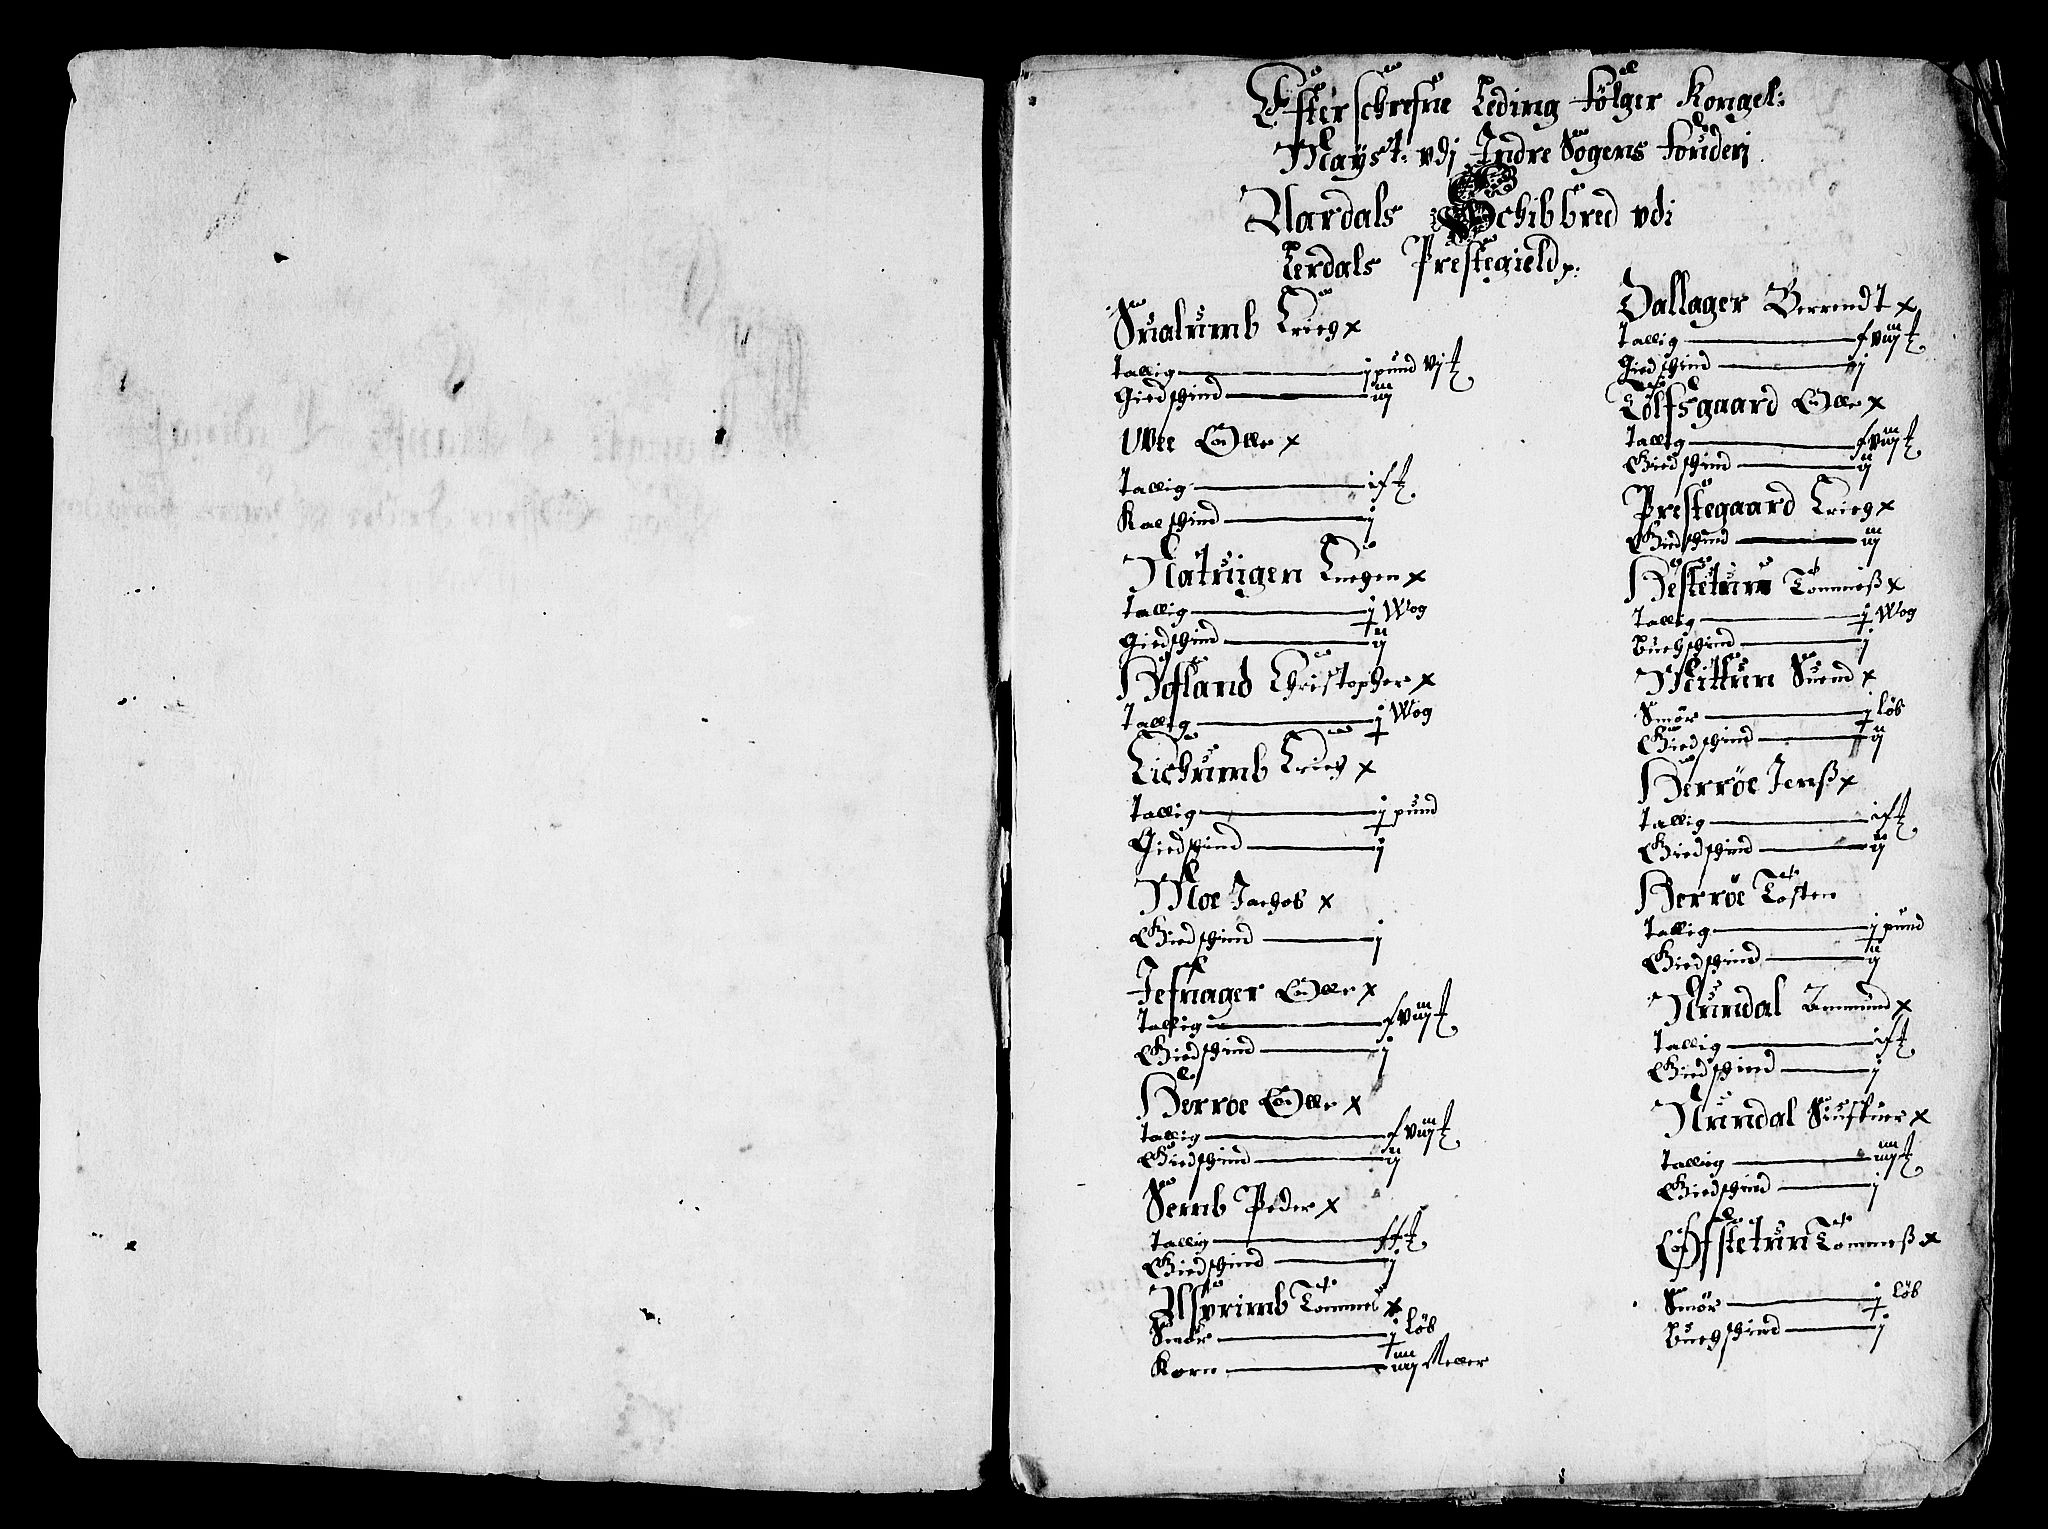 Effterschrefne Leding følger Kongel:
Mayst: vdj Indre Sogens fouderj
Aardals Schibbred vdi
Lerdals Prestegield
Sualumb Erich x
Tallig j pund vj
Giedschind iij
Vee Olle x
Tallig
Kalfschind j
Natuigen Knegen x
Tallig j Wog
Giedschind ij
Hofland Christopher x
Tallig j Wog
Lichumb Erich x
Tallig j pund
Giedschind j
Moe Jachob x
Giedschind j
Jefnager Olle x
Tallig
Giedschind j
Herrøe Olle x
Tallig
Giedschind ij
Semb Peder x
Tallig
Giedschind j
Asprimb Tommes x
Smør j Løb
Korn iiij Meller
Dallager Berrendt x
Tallig
Giedschind j
Lølfsgaard Olle x
Tallig
Giedschind ij
Prestegaard Erich x
Giedschind iij
Hestetun Tommeß x
Tallig j Wog
Buchschind j
Mittun Suend x
Smør j Løb
Giedschind ij
Herrøe Jenß x
Tallig
Giedschind ij
Herrøe Tosten
Tallig j pund
Giedschind ij
Nundal Ammund x
Tallig
Giedschind j
Nundal Siuffuer x
Tallig iiij
Giedschind j
Ofstetun Tommeß x
Smør j Løb
Buchschind j